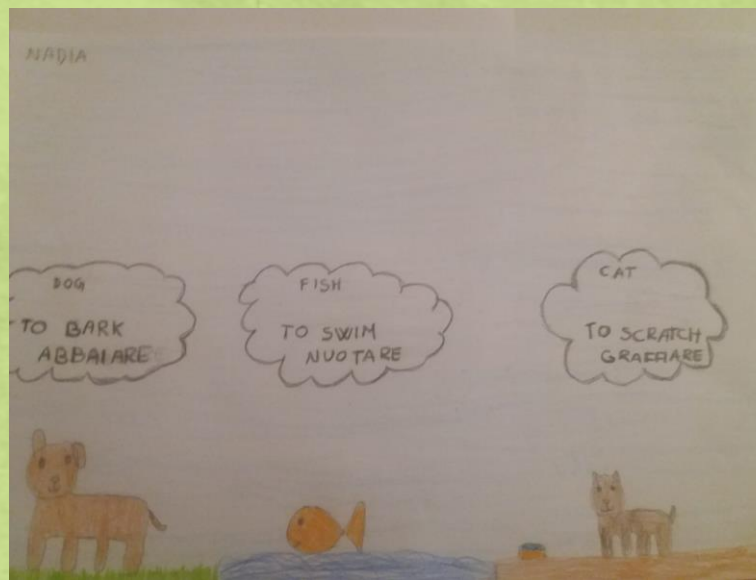 NADIA
DOG
TO BARK
ABBAIARE
FISH
TO SWIM
NUOTARE
CAT
TO SCRATCH
GRAFFIARE